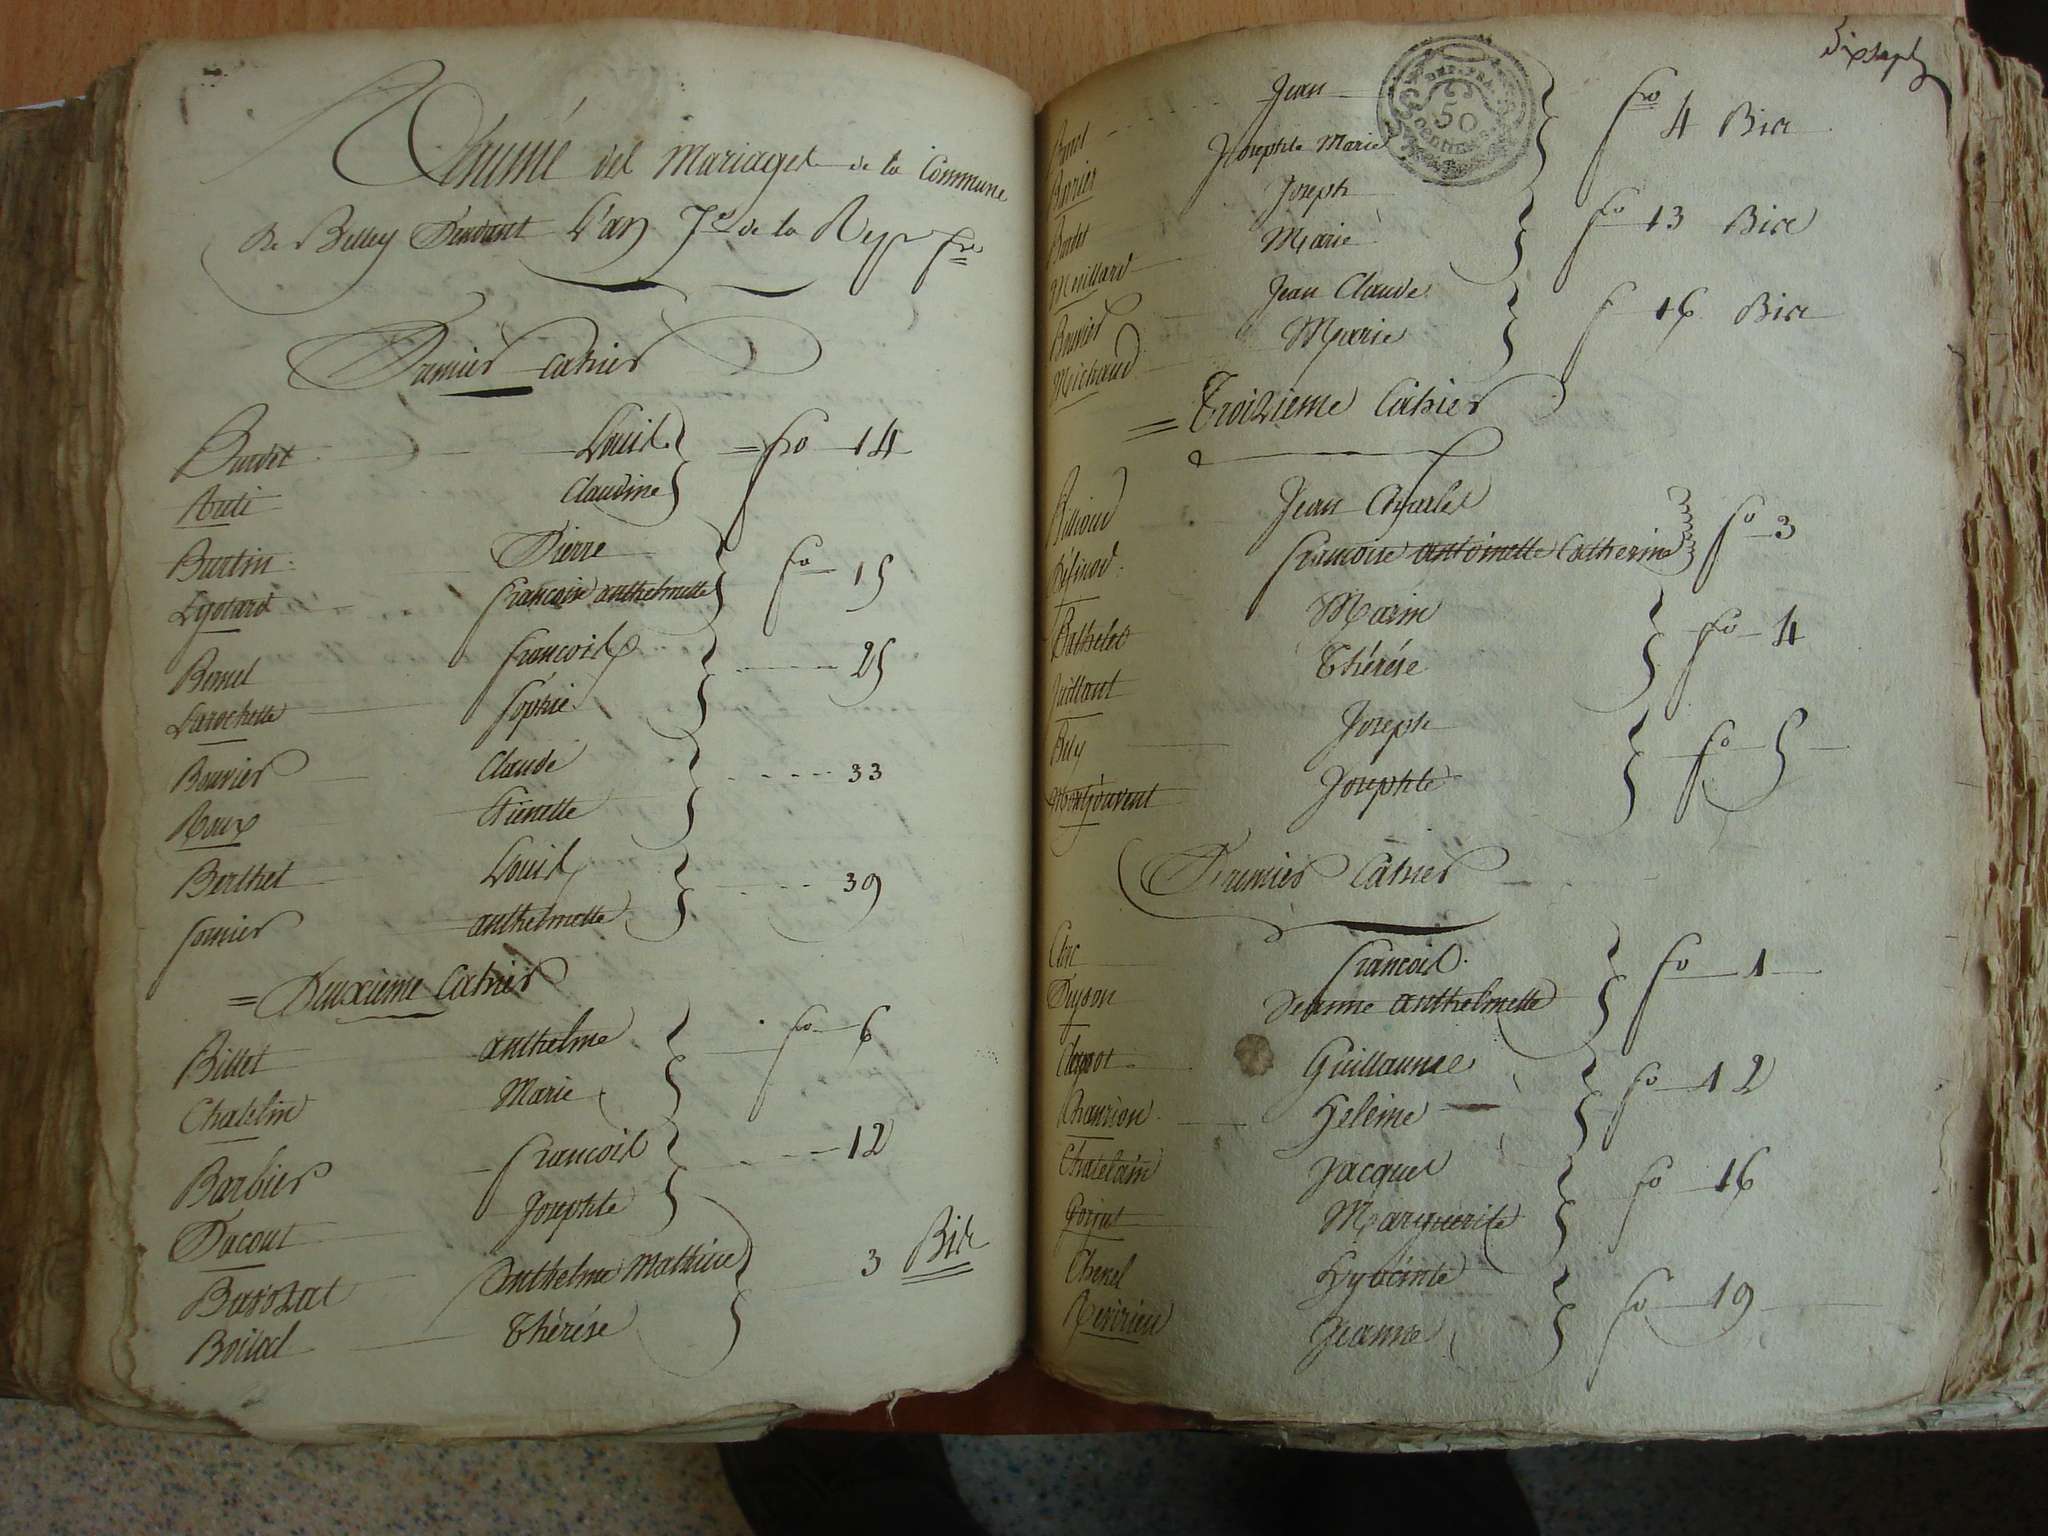 Résumé des Mariages de la Commune
de Belley Pendant L'an 7e de la Rep fre
Premier Cahier
Burdet Louis fo 14
Claudine
Burtin Pierre fo 15
Lyotard francoise anthelmette
Bonnel francois 25
Larochette Sophie
Bouvier Claude 33
Roux Etienette
Berthet Louis 39
fornier anthelmette
= Deuxième Cahier
Billet anthelme fo 6
Chatelin Marie
Barbier francois 12
Ducout Josephte
Barrat Anthelme Mathieu 3 Bis
Boilod Thérése
Dixsept
DEP. FRA.
50
Centimes
Jean fo 4 Bis
Josephte Marie
Joseph fo 13 Bis
Meillard Marie
Bouvier Jean Claude f 16 Bis
Michaud Marie
= Troizieme Cahier
Jean Charles fo 3
francoise antoinette Catherine
Berthelet Marin fo 4
Juillant Thérése
Bely Joseph fo 5
Montgouvent Josephte
Premier Cahier
Clerc francois fo 1
Peyson Jeanne anthelmette
Guillaume fo 12
Chanrion Heleine
Chatelain Jacques fo 16
Gorjut Marguerite
Chenel Hyacinte fo 19
Jeanne